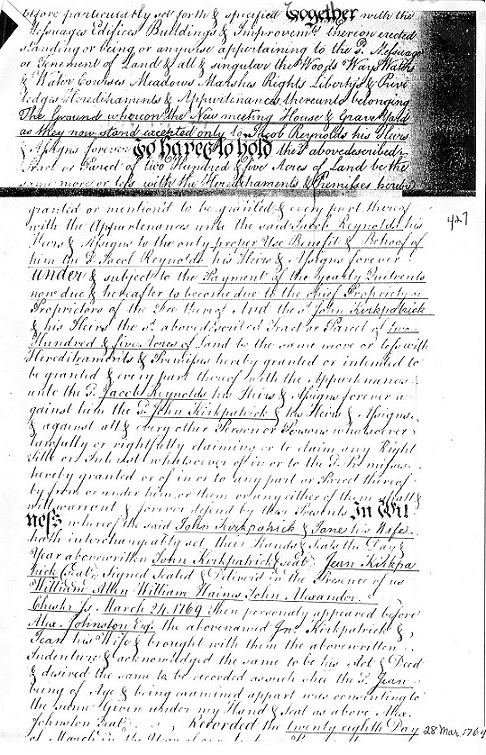 before particularly set forth & specified Together with the
Messuages Edifices Buildings & Improvemts. thereon erected
Standing or being or anywise appertaining to the sd. Messuage
or Tenement of Land & all & singular the Woods Ways Waters
& Water Courses Meadows Marshes Rights Libertys & Privi
ledges Hereditaments & Appurtenances thereunto belonging
The Ground whereon the New meeting House & Grave Yard
as they now stand excepted only to Jacob Reynolds his Heirs
& Assigns forever To have to hold the abovedescribed
Tract or Parcel of two Hundred & five Acres of Land be the
same more or less with the Hereditaments & Premises hereby
granted or mention'd to be granted & every part thereof
with the Appurtenances unto the said Jacob Reynolds his
Heirs & Assigns to the only proper Use Benefit & Behoof of
him the sd. Jacob Reynolds his Heirs & Assigns forever
Under & subject to the Payment of the Yearly Quitrents
now due & hereafter to become due to the chief Proprietor or
Proprietors of the Fee thereof And the sd. John Kirkpatrick
& his Heirs the sd. abovedescribed Tract or Parcel of two
Hundred & five Acres of Land be the same more or less with
Hereditaments & Premises hereby granted or intended to
be granted & every part thereof with the Appurtenances
unto the sd. Jacob Reynolds his Heirs & Assigns forever a
gainst him the sd. John Kirkpatrick & his Heirs & Assigns
& against all & every other Person or Persons whatsoever
lawfully or rightfully claiming or to claim any Right
Title or Interest whatsoever of in or to the sd. Premises
hereby granted or of in or to any part or Parcel thereof
by from or under him or them or any either of them Shall
& will warrant & forever defend by these Presents In Wit
ness whereof the said John Kirkpatrick & Jane his Wife
hath interchangably set their Hands & Seals the Day &
Year abovewritten John Kirkpatrick & seal Jean Kirkpa
trick Seal Signed Sealed & Deliver'd in the Presence of us
William Allen William Hains John Alexander
Chester Ss. March 24. 1769 Then personally appeared before
Alex. Johnston Esqr. the abovenamed Jno. Kirkpatrick &
Jean his Wife & brought with them the abovewritten
Indenture & acknowledged the same to be his Act & Deed
& desired the same to be recorded as such she the sd. Jean
being of Age & being examined appart was consenting to
the same Given under my Hand & Seal as above Alex.
Johnston Seal Recorded the twenty eighth Day
of March in the Year
427
28 Mar. 1769